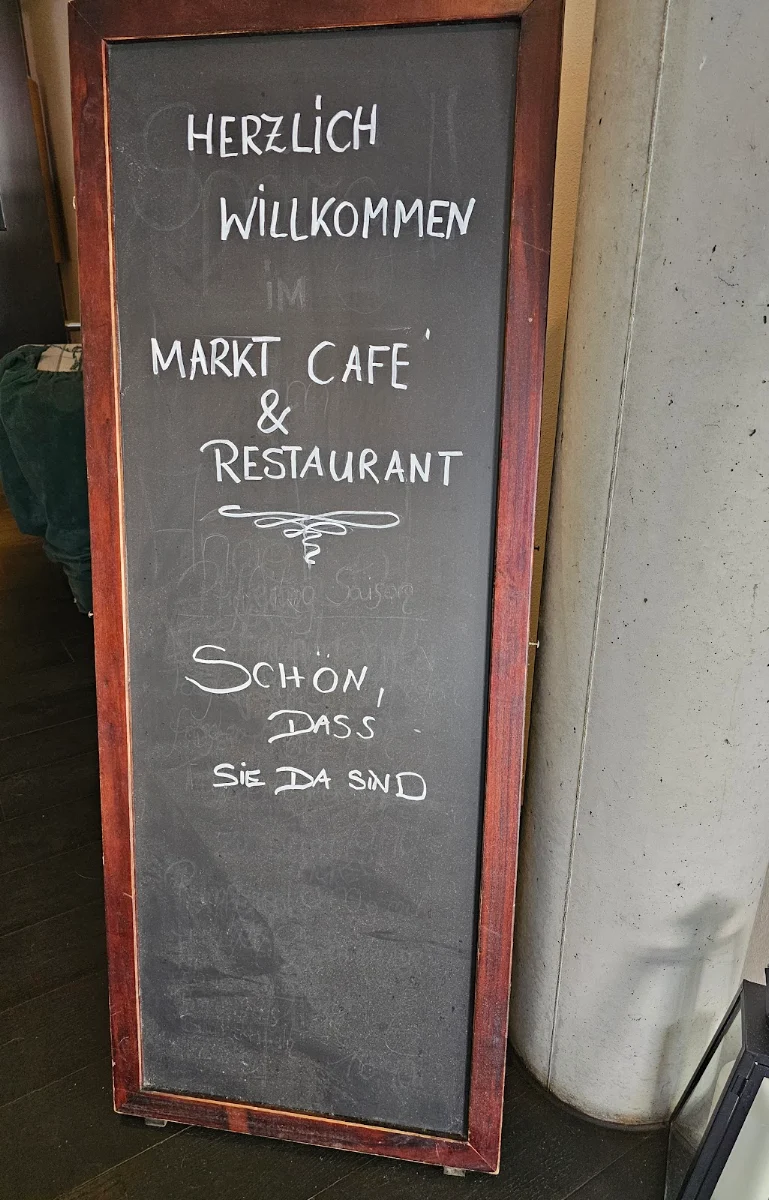 HERZLiCH
WiLLKOMMEN
iM
MARKT CAFE'
&
RESTAURANT
Saison
SCHÖN,
DASS
SiE DA SiND